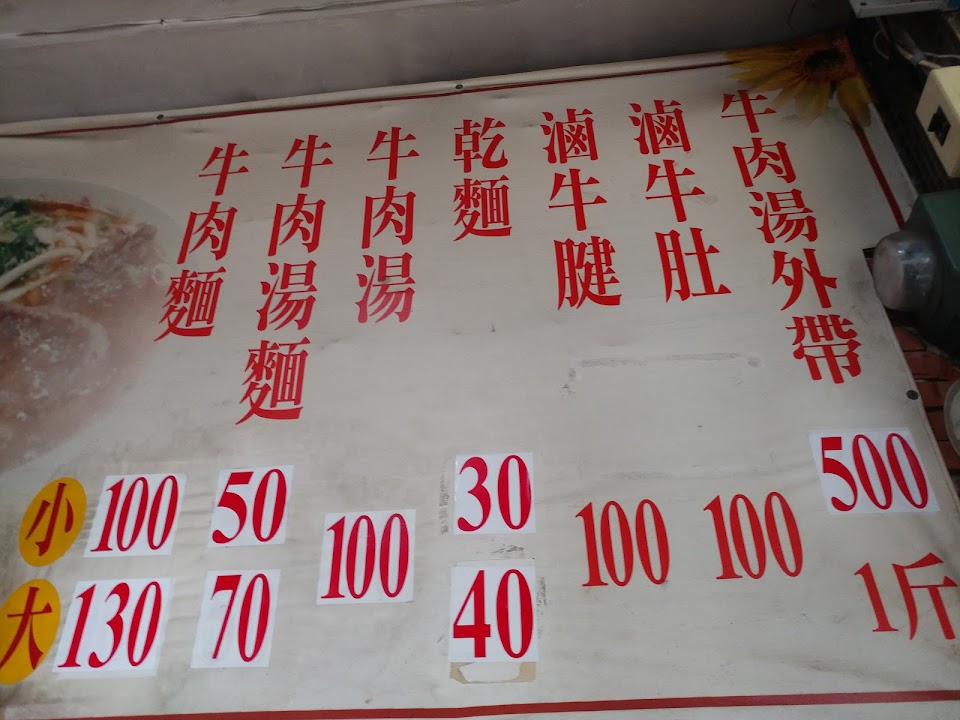 牛肉麵
牛肉湯麵
牛肉湯
乾麵
滷牛腱
滷牛肚
牛肉湯外帶
小 100 50 100 30 100 100 500
大 130 70 40 1斤